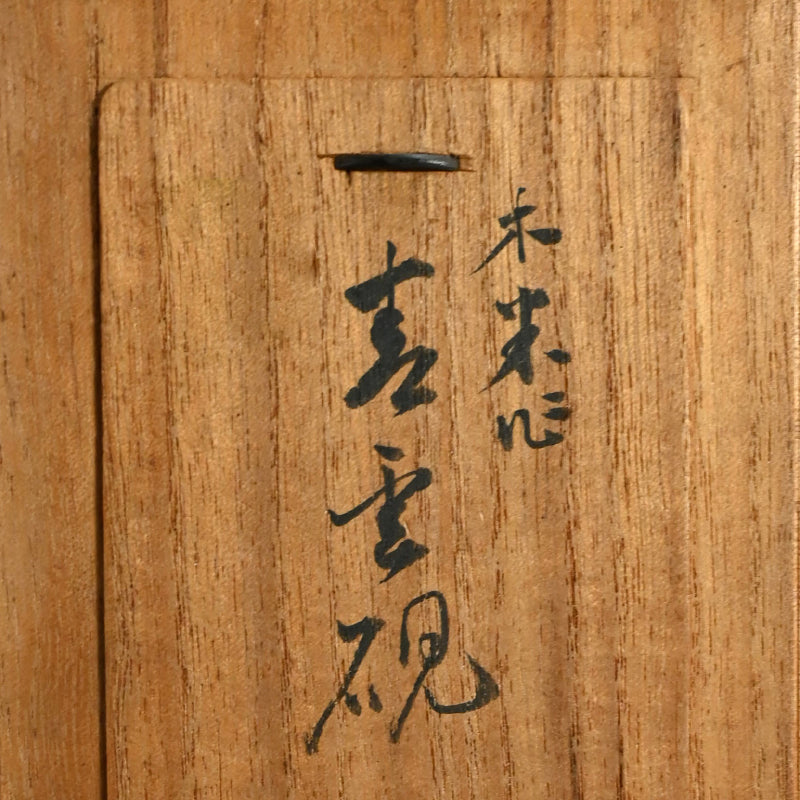 木米作
喜雲硯